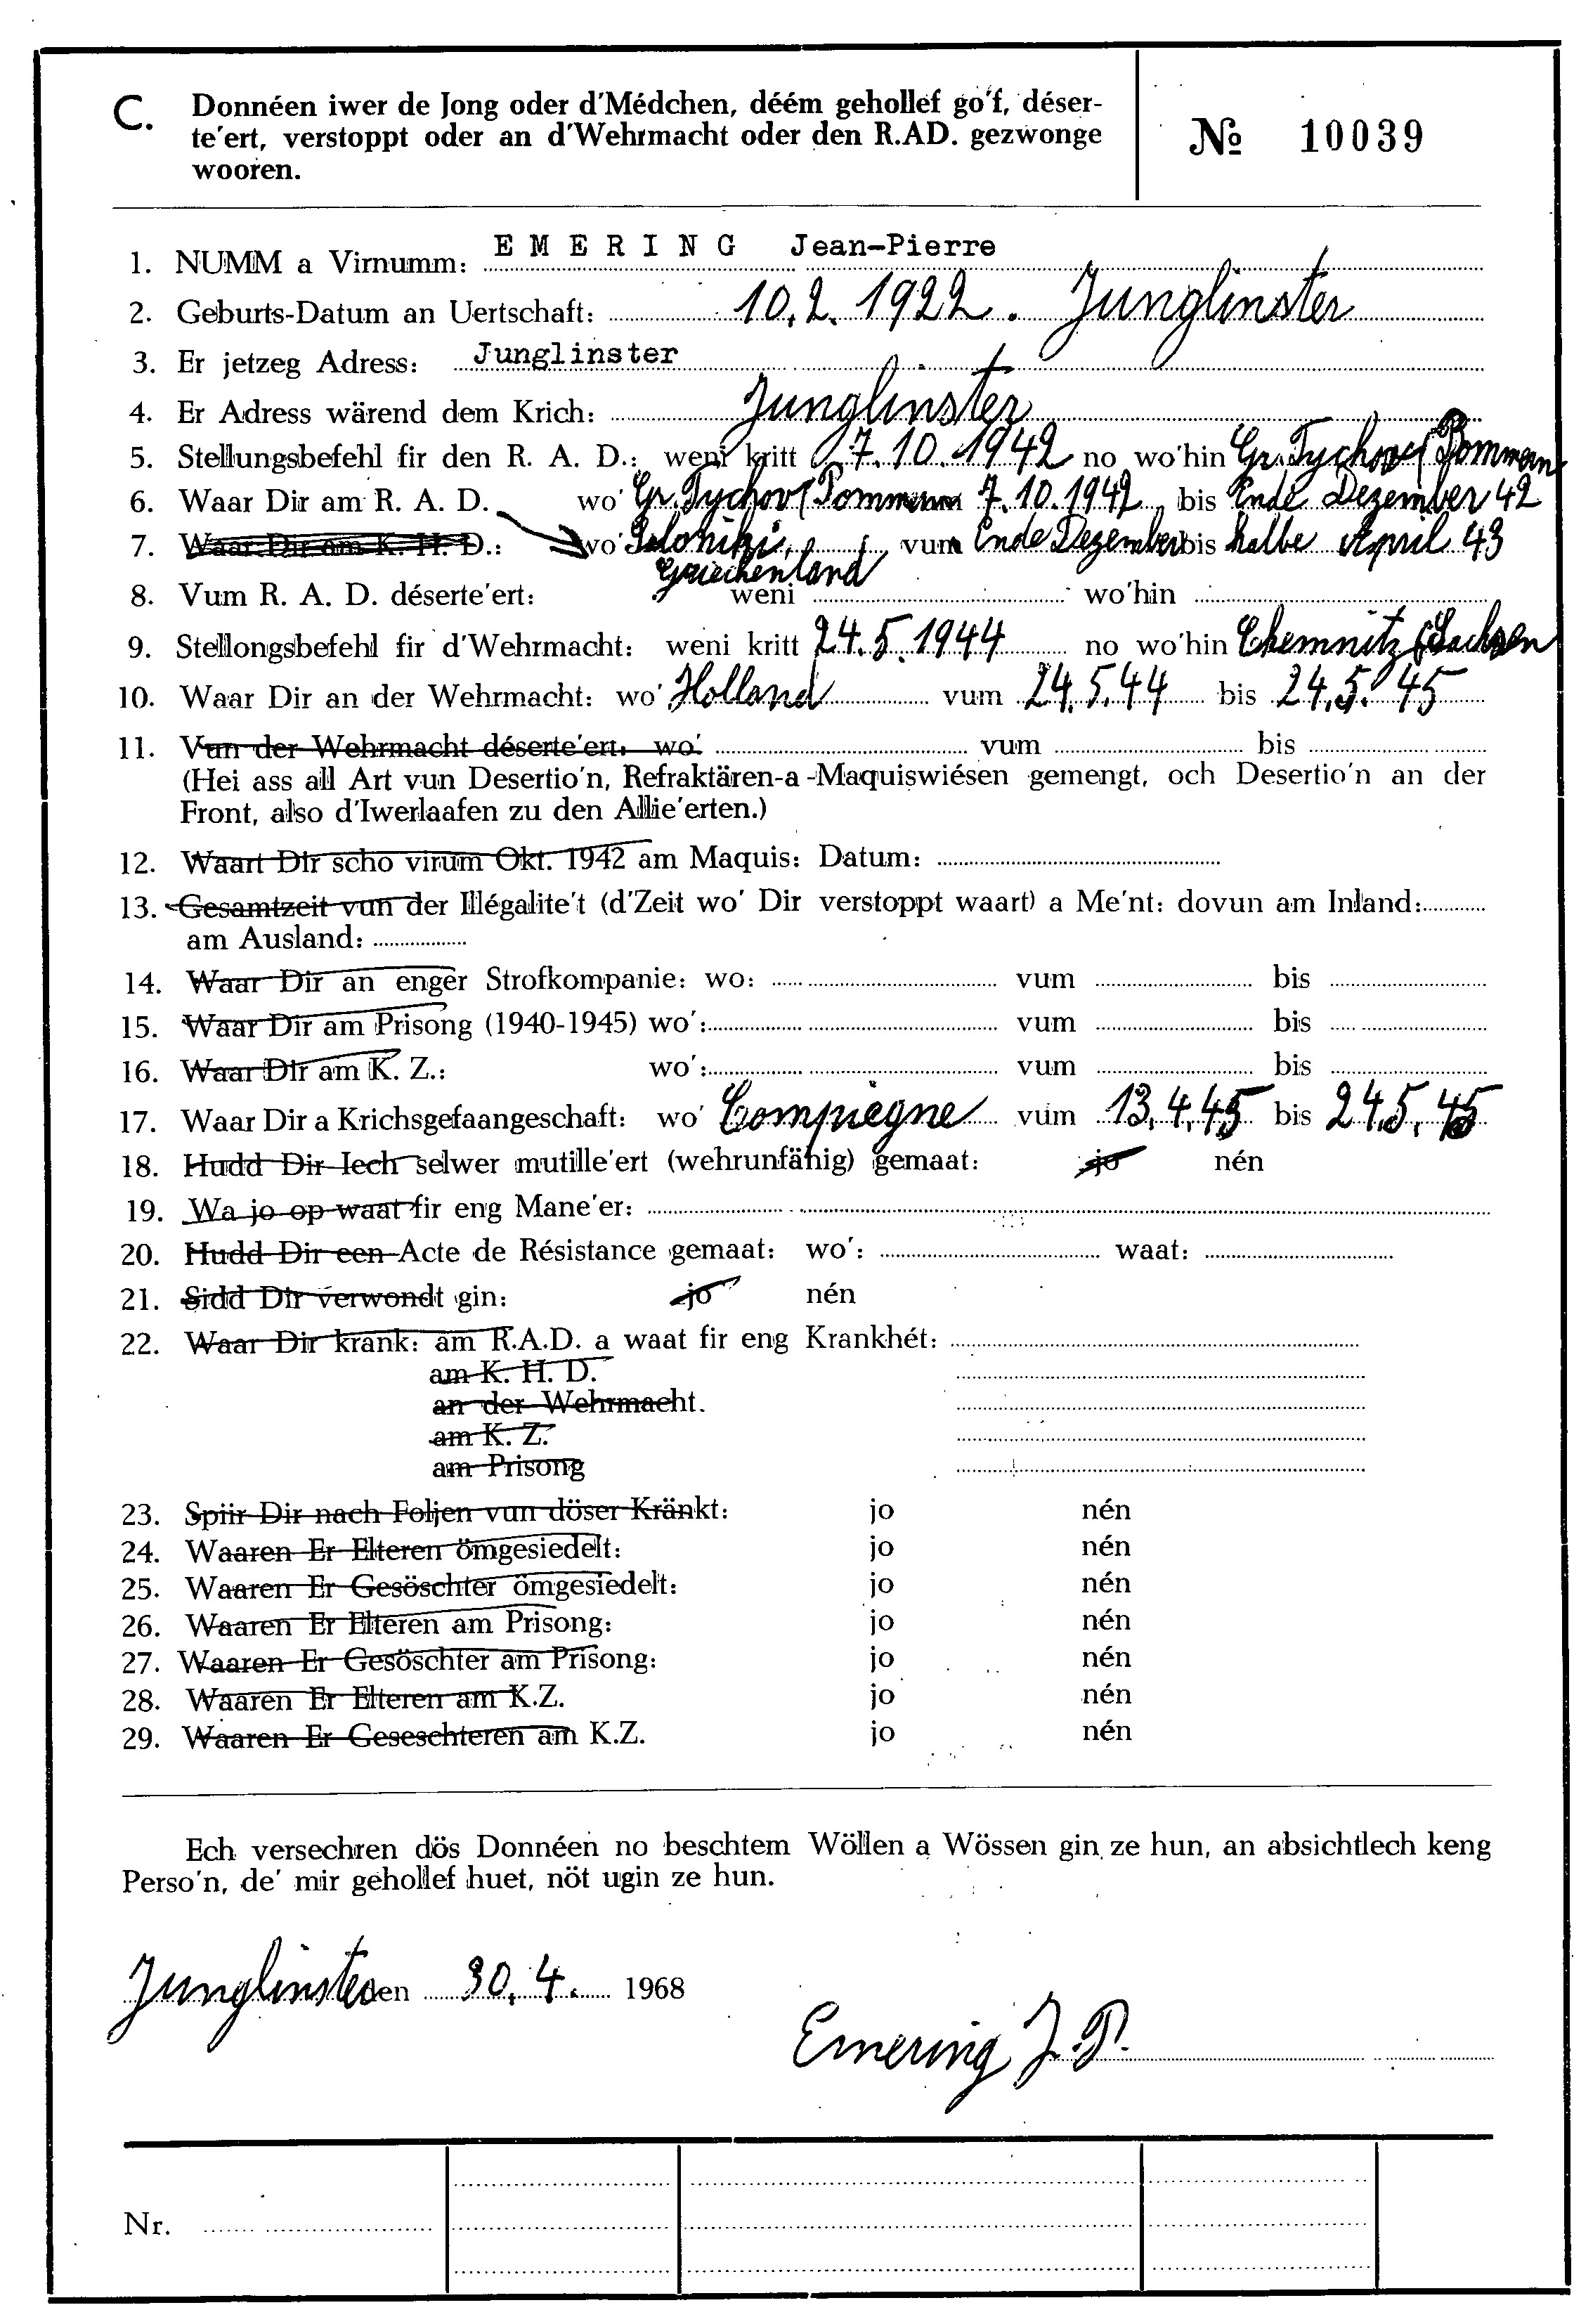 C. Donnéen iwer de Jong oder d'Médchen, déém gehollef go'f, déser-
te'ert, verstoppt oder an d'Wehrmacht oder den R.AD. gezwonge
wooren.
№ 10039
1. NUMM a Virnumm: EMERING Jean-Pierre
2. Geburts-Datum an Uertschaft: 10.2.1922. Junglinster
3. Er jetzeg Adress: Junglinster
4. Er Adress wärend dem Krich: Junglinster
5. Stellungsbefehl fir den R. A. D.: weni kritt 7.10.1942 no wo'hin Gr. Tychow (Pommern
6. Waar Dir am R. A. D. wo' Gr. Tychow (Pommern 7.10.1942 bis Ende Dezember 42
7. Waar Dir am K. H. D.: wo' Saloniki, vum Ende Dezember bis halbe April 43
Griechenland
8. Vum R. A. D. déserte'ert: weni wo'hin
9. Stellongsbefehl fir d'Wehrmacht: weni kritt 24.5.1944 no wo'hin Chemnitz (Sachsen
10. Waar Dir an der Wehrmacht: wo' Holland vum 24.5.44 bis 24.5.45
11. Vun der Wehrmacht déserte'ert: wo' vum bis
(Hei ass all Art vun Desertio'n, Refraktären-a-Maquiswiésen gemengt, och Desertio'n an der
Front, also d'Iwerlaafen zu den Allie'erten.)
12. Waart Dir scho virum Okt. 1942 am Maquis: Datum:
13. Gesamtzeit vun der Illégalite't (d'Zeit wo' Dir verstoppt waart) a Me'nt: dovun am Inland:
am Ausland:
14. Waar Dir an enger Strofkompanie: wo: vum bis
15. Waar Dir am Prisong (1940-1945) wo': vum bis
16. Waar Dir am K. Z.: wo': vum bis
17. Waar Dir a Krichsgefaangeschaft: wo' Compiegne vum 13.4.45 bis 24.5.45
18. Hudd Dir Iech selwer mutille'ert (wehrunfähig) gemaat: jo nén
19. Wa jo op waat fir eng Mane'er:
20. Hudd Dir een Acte de Résistance gemaat: wo': waat:
21. Sidd Dir verwondt gin: jo nén
22. Waar Dir krank: am R.A.D. a waat fir eng Krankhét:
am K. H. D.
an der Wehrmacht.
am K. Z.
am Prisong
23. Spiir Dir nach Foljen vun döser Kränkt: jo nén
24. Waaren Er Elteren ömgesiedelt: jo nén
25. Waaren Er Gesöschter ömgesiedelt: jo nén
26. Waaren Er Elteren am Prisong: jo nén
27. Waaren Er Gesöschter am Prisong: jo nén
28. Waaren Er Elteren am K.Z. jo nén
29. Waaren Er Geseschteren am K.Z. jo nén
Ech versechren dös Donnéen no beschtem Wöllen a Wössen gin ze hun, an absichtlech keng
Perso'n, de' mir gehollef huet, nöt ugin ze hun.
Junglinster den 30.4. 1968
Emering J.P.
Nr.